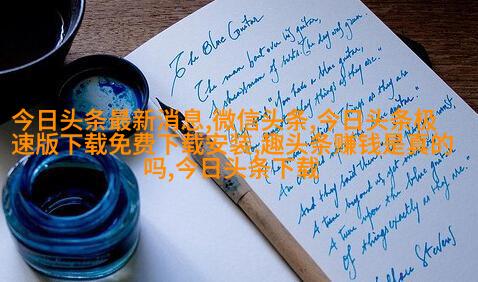 The Blue Guitar
The man bent over his guitar,
A shearsman of sorts. The day was green.
"You have a blue guitar,
things as they are."
as they are
今日头条最新消息,微信头条,今日头条极
速版下载免费下载安装,趣头条赚钱是真的
吗,今日头条下载
And they said then
A tune beyond us, yet ourselves,
A tune upon the blue guitar
Of things exactly as they are."
Wallace Stevens